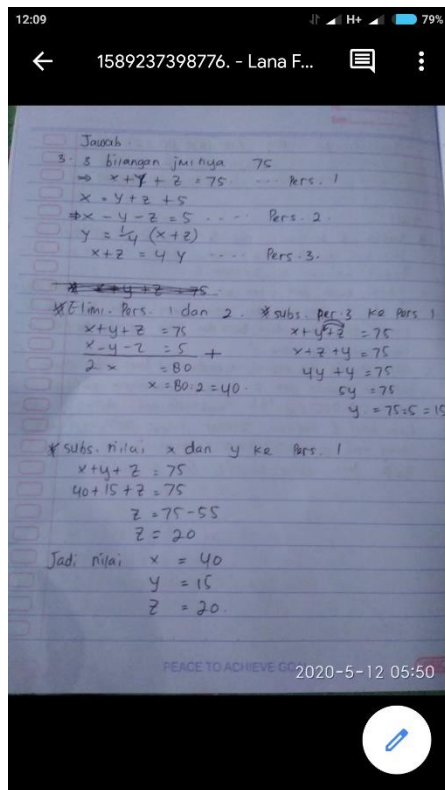 12:09 H+ 79%
1589237398776. - Lana F...
Jawab.
3. 3 bilangan jmlnya 75
⇒ x + y + z = 75 .... Pers. 1
x = y + z + 5
⇒ x - y - z = 5 .... Pers. 2.
y = 1/4 (x+z)
x + z = 4y .... Pers. 3.
x + y + z = 75
* Elimi. Pers. 1 dan 2.
x + y + z = 75
x - y - z = 5 +
2x = 80
x = 80:2 = 40.
* subs. per. 3 ke Pers 1
x + y + z = 75
x + z + y = 75
4y + y = 75
5y = 75
y = 75:5 = 15
* subs. nilai x dan y ke Pers. 1
x + y + z = 75
40 + 15 + z = 75
z = 75 - 55
z = 20
Jadi nilai x = 40
y = 15
z = 20.
PEACE TO ACHIEVE
2020-5-12 05:50